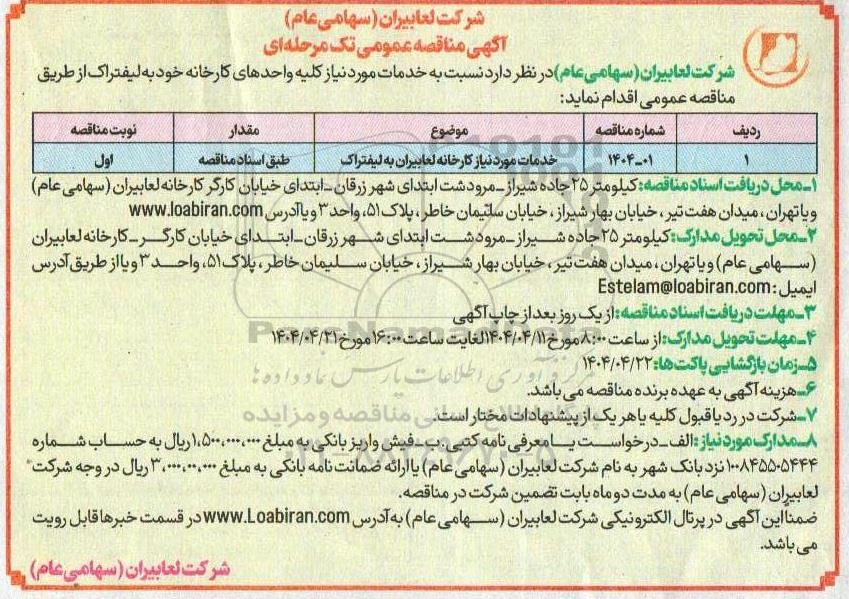 شرکت لعابیران (سهامی عام)
آگهی مناقصه عمومی تک مرحله‌ای
شرکت لعابیران (سهامی عام) در نظر دارد نسبت به خدمات مورد نیاز کلیه واحدهای کارخانه خود به لیفتراک از طریق
مناقصه عمومی اقدام نماید:
ردیف شماره مناقصه موضوع مقدار نوبت مناقصه
۱ ۰۱-۱۴۰۴ خدمات مورد نیاز کارخانه لعابیران به لیفتراک طبق اسناد مناقصه اول
۱ـ محل دریافت اسناد مناقصه: کیلومتر ۲۵ جاده شیراز ـ مرودشت ابتدای شهر زرقان ـ ابتدای خیابان کارگر کارخانه لعابیران (سهامی عام)
و یا تهران، میدان هفت تیر، خیابان بهار شیراز، خیابان سلیمان خاطر، پلاک ۵۱، واحد ۳ و یا آدرس www.loabiran.com
۲ـ محل تحویل مدارک: کیلومتر ۲۵ جاده شیراز ـ مرودشت ابتدای شهر زرقان ـ ابتدای خیابان کارگر ـ کارخانه لعابیران
(سهامی عام) و یا تهران، میدان هفت تیر، خیابان بهار شیراز، خیابان سلیمان خاطر، پلاک ۵۱، واحد ۳ و یا از طریق آدرس
ایمیل: Estelam@loabiran.com
۳ـ مهلت دریافت اسناد مناقصه: از یک روز بعد از چاپ آگهی
۴ـ مهلت تحویل مدارک: از ساعت ۸:۰۰ مورخ ۱۴۰۴/۰۴/۱۱ لغایت ساعت ۱۶:۰۰ مورخ ۱۴۰۴/۰۴/۲۱
۵ـ زمان بازگشایی پاکت‌ها: ۱۴۰۴/۰۴/۲۲
۶ـ هزینه آگهی به عهده برنده مناقصه می باشد.
۷ـ شرکت در رد یا قبول کلیه یا هر یک از پیشنهادات مختار است.
۸ـ مدارک مورد نیاز: الف ـ درخواست یا معرفی نامه کتبی ب ـ فیش واریز بانکی به مبلغ ۱,۵۰۰,۰۰۰,۰۰۰ ریال به حساب شماره
۱۰۰۸۴۵۵۰۵۴۴۴ نزد بانک شهر به نام شرکت لعابیران (سهامی عام) یا ارائه ضمانت نامه بانکی به مبلغ ۳,۰۰۰,۰۰۰,۰۰۰ ریال در وجه شرکت
لعابیران (سهامی عام) به مدت دو ماه بابت تضمین شرکت در مناقصه.
ضمنا این آگهی در پرتال الکترونیکی شرکت لعابیران (سهامی عام) به آدرس www.Loabiran.com در قسمت خبرها قابل رویت
می باشد.
شرکت لعابیران (سهامی عام)